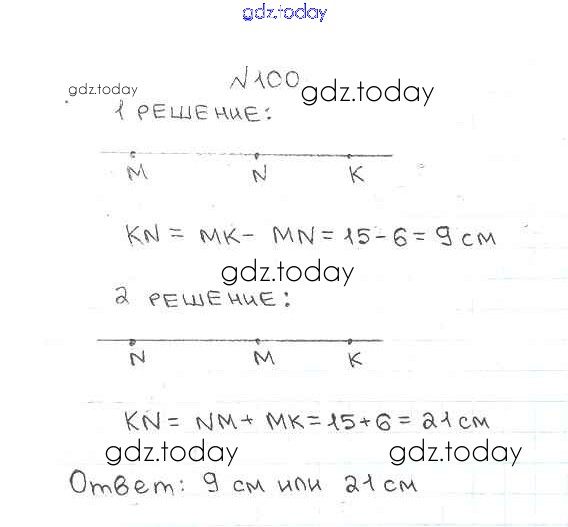 gdz.today
№100
gdz.today gdz.today
1 РЕШЕНИЕ:
M N K
KN = MK - MN = 15 - 6 = 9 см
gdz.today
2 РЕШЕНИЕ:
N M K
KN = NM + MK = 15 + 6 = 21 см
gdz.today gdz.today
Ответ: 9 см или 21 см